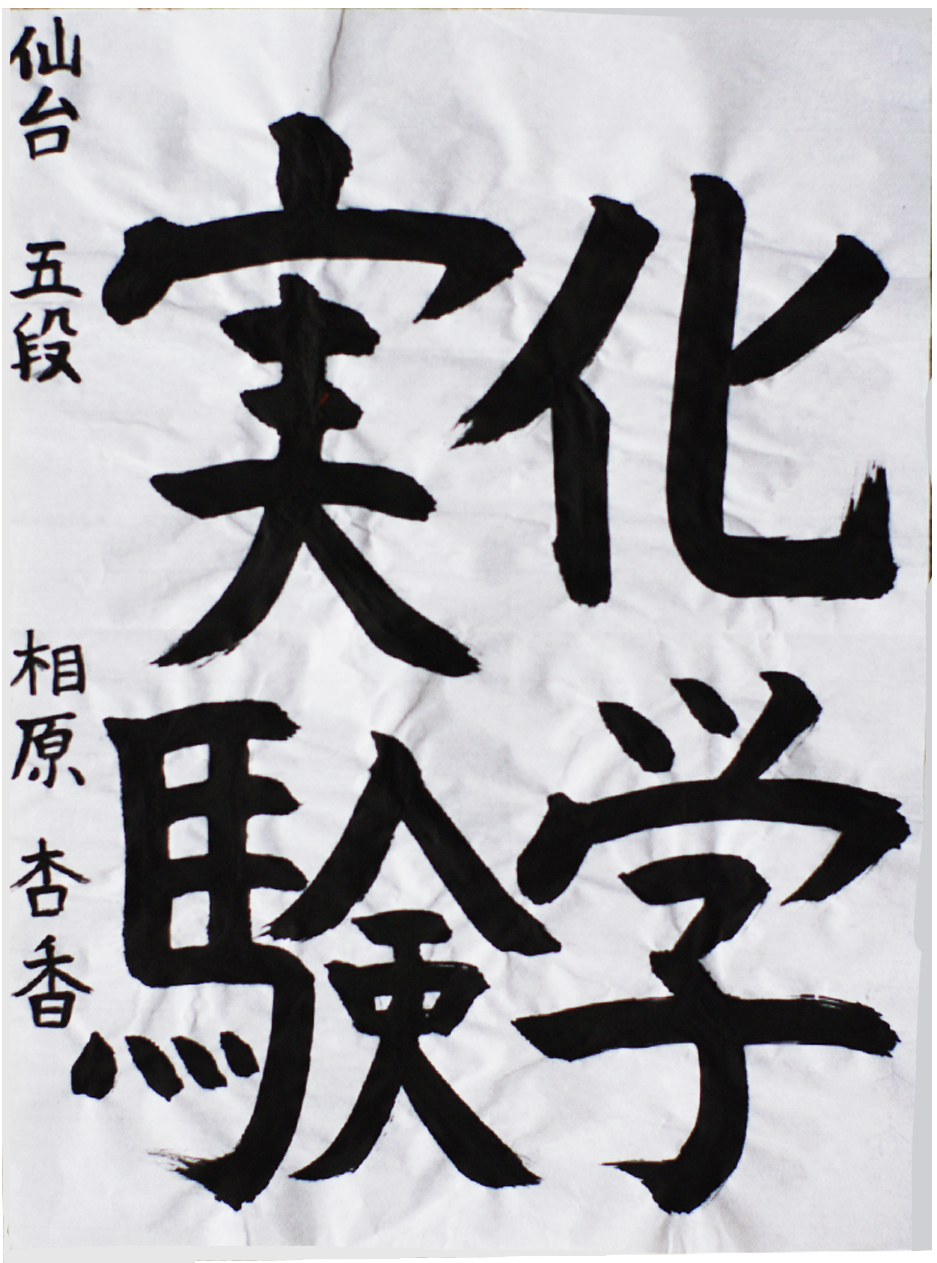 化学
実験
仙台 五段 相原 杏香